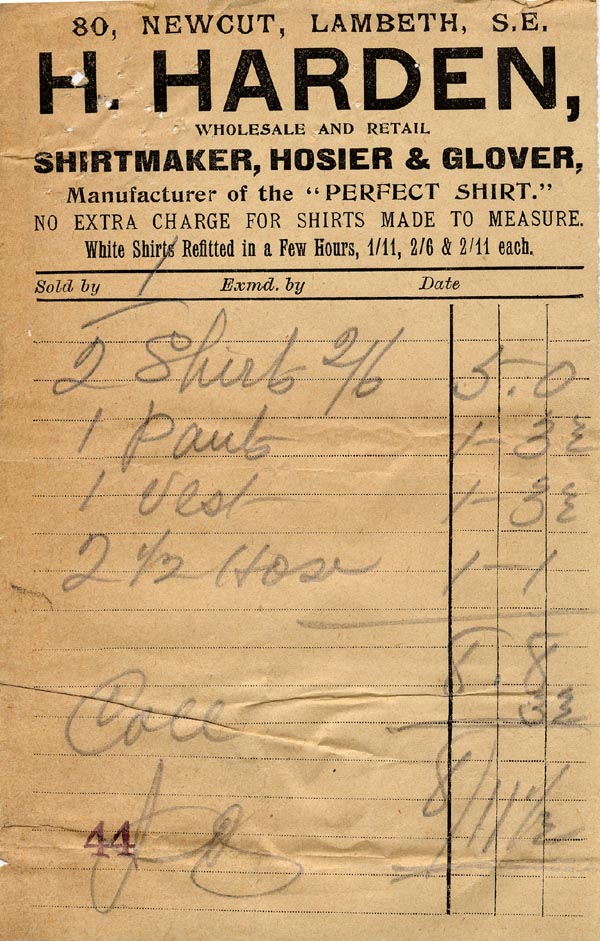 80, NEWCUT, LAMBETH, S.E.
H. HARDEN,
WHOLESALE AND RETAIL
SHIRTMAKER, HOSIER & GLOVER,
Manufacturer of the "PERFECT SHIRT."
NO EXTRA CHARGE FOR SHIRTS MADE TO MEASURE.
White Shirts Refitted in a Few Hours, 1/11, 2/6 & 2/11 each.
Sold by 1 Exmd. by Date
2 Shirts 2/6 5.0
1 Pants 1-3½
1 Vest 1-3½
2 ½ Hose 1-1
8.8
Coll 3½
8/11½
44